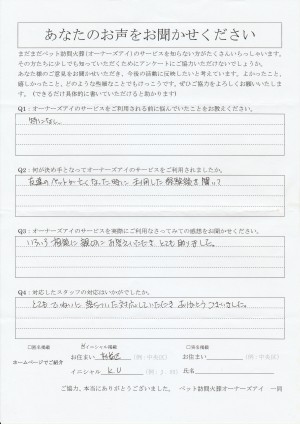 あなたのお声をお聞かせください
まだまだペット訪問火葬(オーナーズアイ)のサービスを知らない方がたくさんいらっしゃいます。
その方たちに少しでも知っていただくためにアンケートにご協力いただけないでしょうか。
あなた様のご意見をお聞かせいただき、今後の活動に反映したいと考えています。よかったこと、
嬉しかったこと、どのような些細なことでもけっこうです。ぜひご協力をよろしくお願いいたします。
(できるだけ具体的に書いていただけると助かります)
Q1：オーナーズアイのサービスをご利用される前に悩んでいたことをお教えください。
特になし
Q2：何が決め手となってオーナーズアイのサービスをご利用されましたか。
友達のペットが亡くなった時に利用した体験談を聞いて
Q3：オーナーズアイのサービスを実際にご利用なさってみての感想をお聞かせください。
いろいろ相談に親切にお答えいただき、とても助かりました。
Q4：対応したスタッフの対応はいかがでしたか。
とてもていねいに対応していただき ありがとうございました。
ホームページでご紹介
□匿名掲載 イニシャル掲載 □実名掲載
お住まい (例：中央区) お住まい (例：中央区)
イニシャル K U (例：J．M) 氏名
ご協力、本当にありがとうございました。 ペット訪問火葬オーナーズアイ 一同